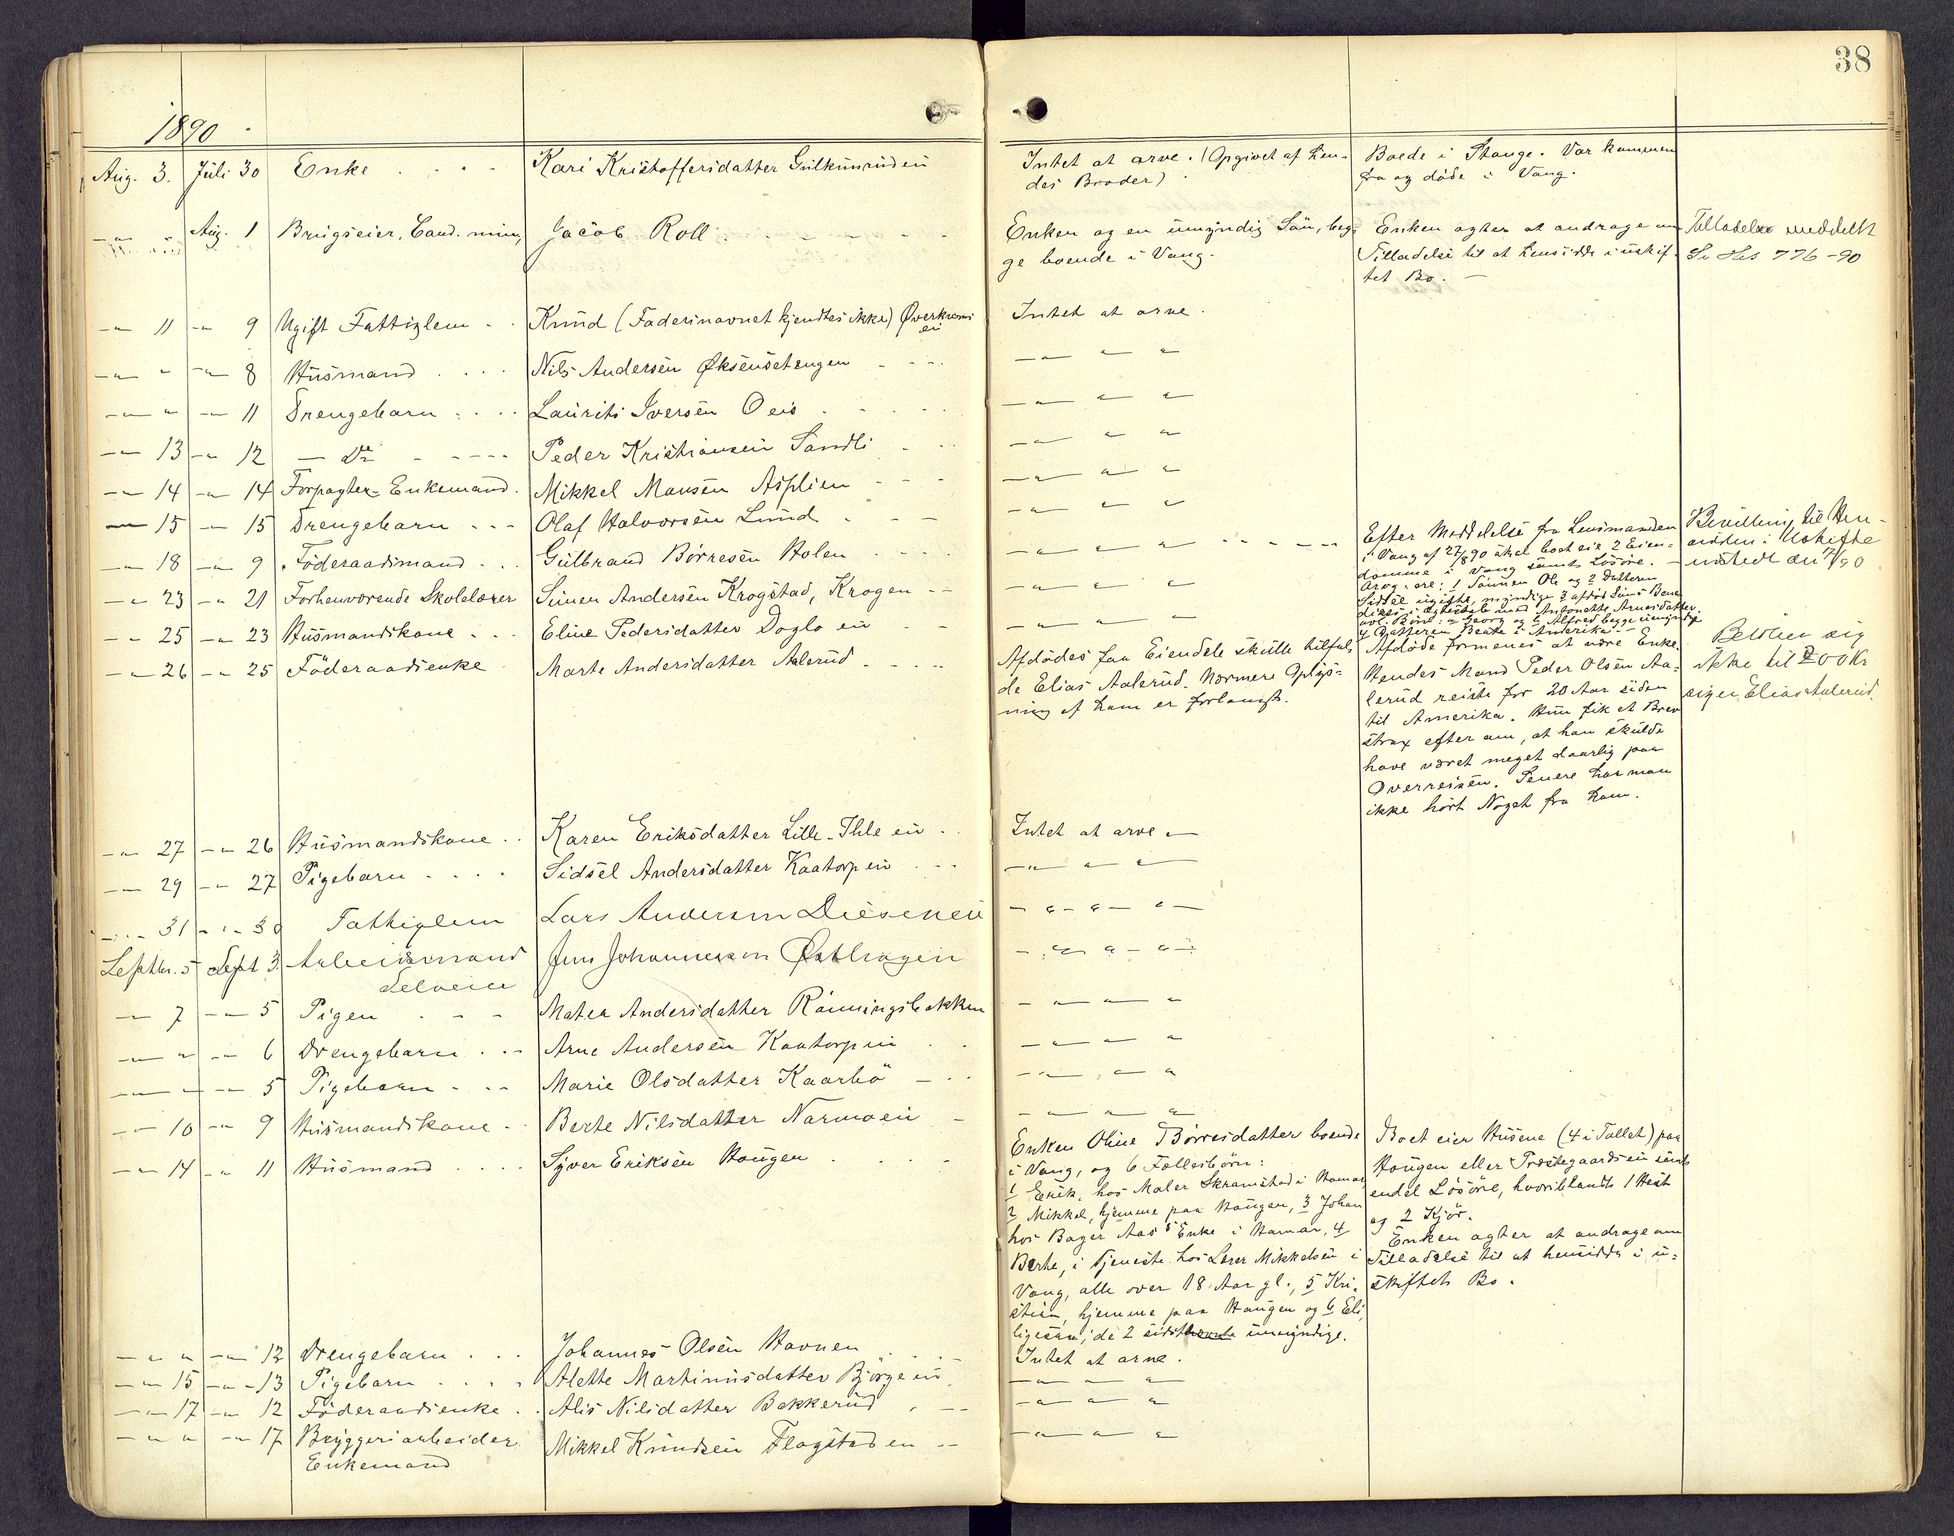 38
1890
Aug. 3. Juli 30 Enke . . . . Kari Kristoffersdatter Gulkunruden
Intet at arve. (Opgivet af hen-
des Broder)
Boede i Stange. Var kommen
fra og døde i Vang.
— " — " Aug. 1 Brugseier, Cand. min, Jacob Roll
Enken og en umyndig Søn, beg-
ge boende i Vang.
Enken agter at andrage om
Tilladelse til at hensidde i uskif-
tet Bo. —
Tilladelse meddelt
776-90
— " — 11 — " — 9 Ugift Fattiglem . . Knud (Fadersnavnet kjendtes ikke)
Intet at arve.
— " — " — " — 8 Husmand . . . . Nils Andersen Øksensetengen
— " — " "
— " — " — " — 11 Drengebarn . . . . Laurits Iversen Oeis
— " — " "
— " — 13 — " — 12 — Do — Peder Kristiansen Sandli
— " — " "
— " — 14 — " — 14 Forpagter-Enkemand. Mikkel Mansen Asplien
— " — " "
— " — 15 — " — 15 Drengebarn . . . Olaf Halvorsen Lund
— " — " "
— " — 18 — " — 9 Føderaadsmand . . . Gulbrand Børresen Holen
— " — " "
Efter Meddelse fra Lensmanden
i Vang af 27/8 90 skal boet eie 2 Eien-
domme i Vang samt Løsøre. —
Arvg. ere: 1 Sønnen Ole og 2 Datteren
Sidsel ugifte, myndige 3 afdøde Søns
i Ægteskab med Antonette Arnesdatter
avl. Børn: a Georg og b Alfred begge umyndige
4 Datteren Beate i Amerika —
Bevilling til Hen-
sidden i Uskifte
— " — 23 — " — 21 Forhenværende Skolelærer Simen Andersen Krogstad, Krogen
— " — " "
— " — 25 — " — 23 Husmandskone . . . Eline Pedersdatter Dogloen
— " — 26 — " — 25 Føderaadsenke Marte Andersdatter Aalerud
Afdødes faa Eiendele skulle tilfal-
de Elias Aalerud. Nærmere Oplys-
ning af ham er forlangt.
Afdøde formenes at være Enke.
Hendes Mand Peder Olsen Aa-
lerud reiste for 20 Aar siden
til Amerika. Hun fik et Brev
strax efter om, at han skulde
have været meget daarlig paa
Overreisen. Senere har man
ikke hørt Noget fra ham.
Beløber sig
ikke til 200 Kr
siger Elias Aalerud.
— " — 27 — " — 26 Husmandskone . . Karen Eriksdatter Lille-Ihleen
Intet at arve —
— " — 29 — " — 27 Pigebarn . . . . Sidsel Andersdatter Kaatorpen
— " — " "
— " — 31 — " — 30 Fattiglem Lars Andersen Dieseneie
— " — " "
Septbr. 5 Sept 3. Arbeidsmand Jens Johannessen Østhagen
Selveier
— " — " "
— " — 7 — " — 5 Pigen . — — Matea Andersdatter Rønningsbakken
— " — " "
— " — " — " — 6 Drengebarn . . . Arne Andersen Kaatorpen
— " — " "
— " — " — " — 5 Pigebarn — . . Marie Olsdatter Kaarbø
— " — " "
— " — 10 — " — 9 Husmandskone . . Berte Nilsdatter Narmoen
— " — " "
— " — 14 — " — 11 Husmand . . . . Syver Eriksen Haugen
Enken Oline Børresdatter boende
i Vang, og 6 Fællesbørn:
1 Erik, hos Maler Skramstad i Hamar,
2 Mikkel, hjemme paa Haugen, 3 Johan
hos Bager Aas's Enke i Hamar, 4
Berthe, i Tjeneste hos Lærer Mikkelsen i
Vang, alle over 18 Aar gl., 5 Kri-
stian, hjemme paa Haugen og 6 Eli,
ligesaa, de 2 sidst umyndige.
Boet eier Husene (4 i Tallet) paa
Haugen eller Præstegaardseie samt
endel Løsøre, hvoriblandt 1 Hest
og 2 Kjør.
Enken agter at andrage om
Tilladelse til at hensidde i u-
skiftet Bo.
— " — " — " — 12 Drengebarn . . . Johannes Olsen Havnen
Intet at arve.
— " — 15 — " — 13 Pigebarn . . . . Alette Martinusdatter Bjørgeeie
— " — " "
— " — 17 — " — 12 Føderaadsenke . . Alis Nilsdatter Bakkerud
— " — " "
— " — " — " — 17 Bryggeriarbeider Mikkel Knudsen Flagstaden
Enkemand
— " — " "